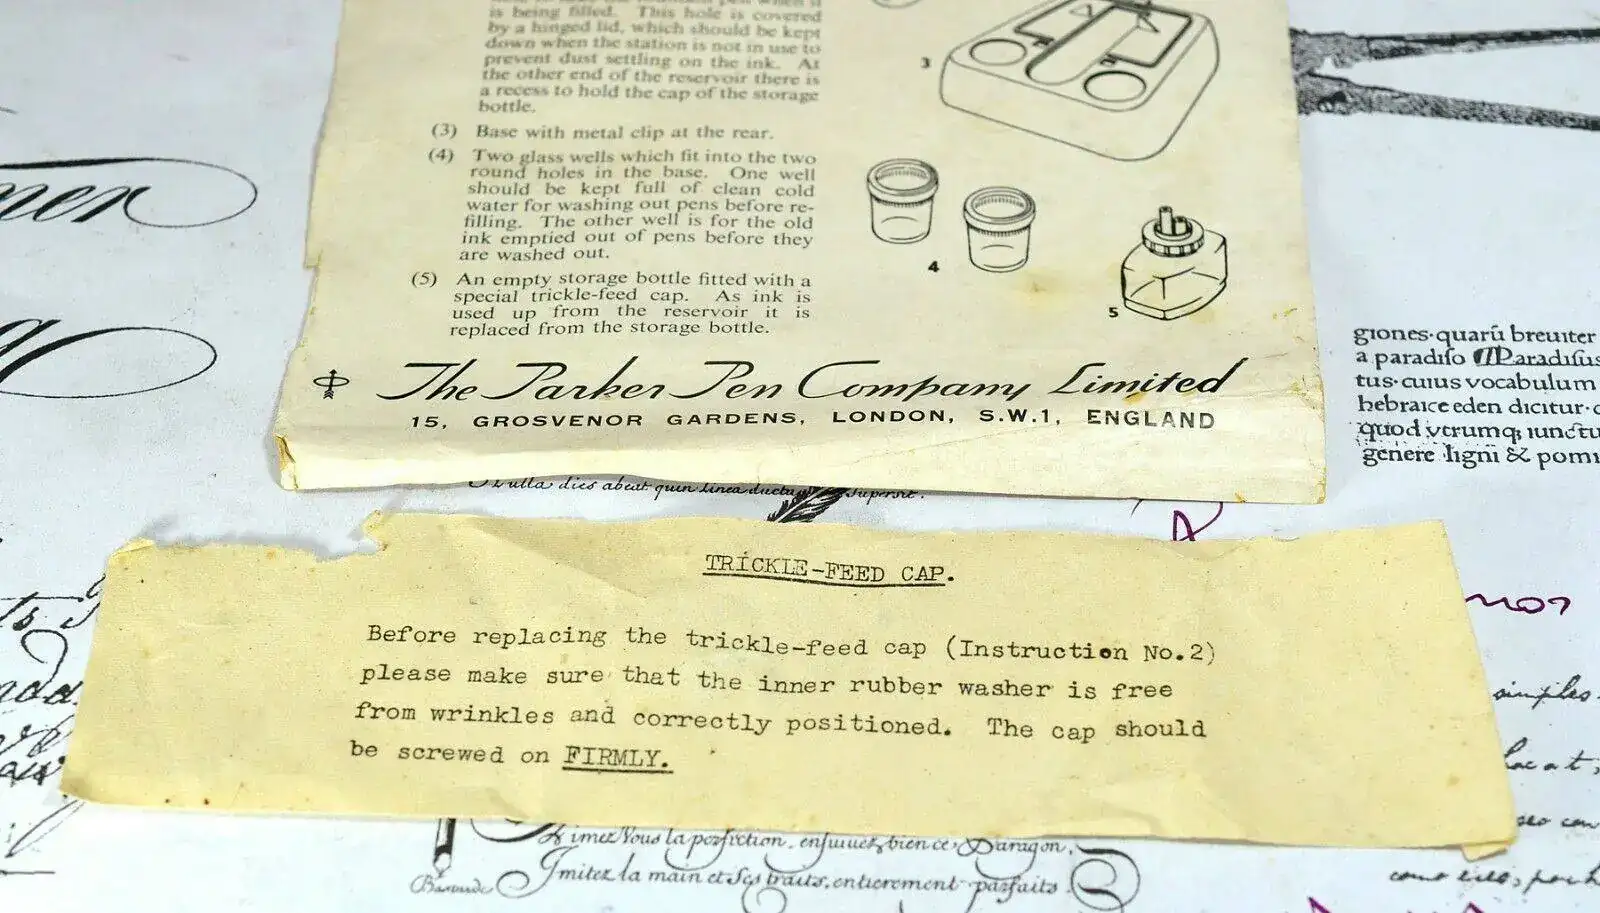 is being filled. This hole is covered
by a hinged lid, which should be kept
down when the station is not in use to
prevent dust settling on the ink. At
the other end of the reservoir there is
a recess to hold the cap of the storage
bottle.
(3) Base with metal clip at the rear.
(4) Two glass wells which fit into the two
round holes in the base. One well
should be kept full of clean cold
water for washing out pens before re-
filling. The other well is for the old
ink emptied out of pens before they
are washed out.
(5) An empty storage bottle fitted with a
special trickle-feed cap. As ink is
used up from the reservoir it is
replaced from the storage bottle.
3
4
5
The Parker Pen Company Limited
15, GROSVENOR GARDENS, LONDON, S.W.1, ENGLAND
giones·quarū breuiter
a paradiso Paradisus
tus·cuius vocabulum
hebraice eden dicitur·
quod vtrumq; iunctu
genere ligni & pomi
Nulla dies abeat quin linea ducta supersit.
TRICKLE-FEED CAP.
Before replacing the trickle-feed cap (Instruction No.2)
please make sure that the inner rubber washer is free
from wrinkles and correctly positioned. The cap should
be screwed on FIRMLY.
simples
Imitez la main et Ses traits, entierement parfaits